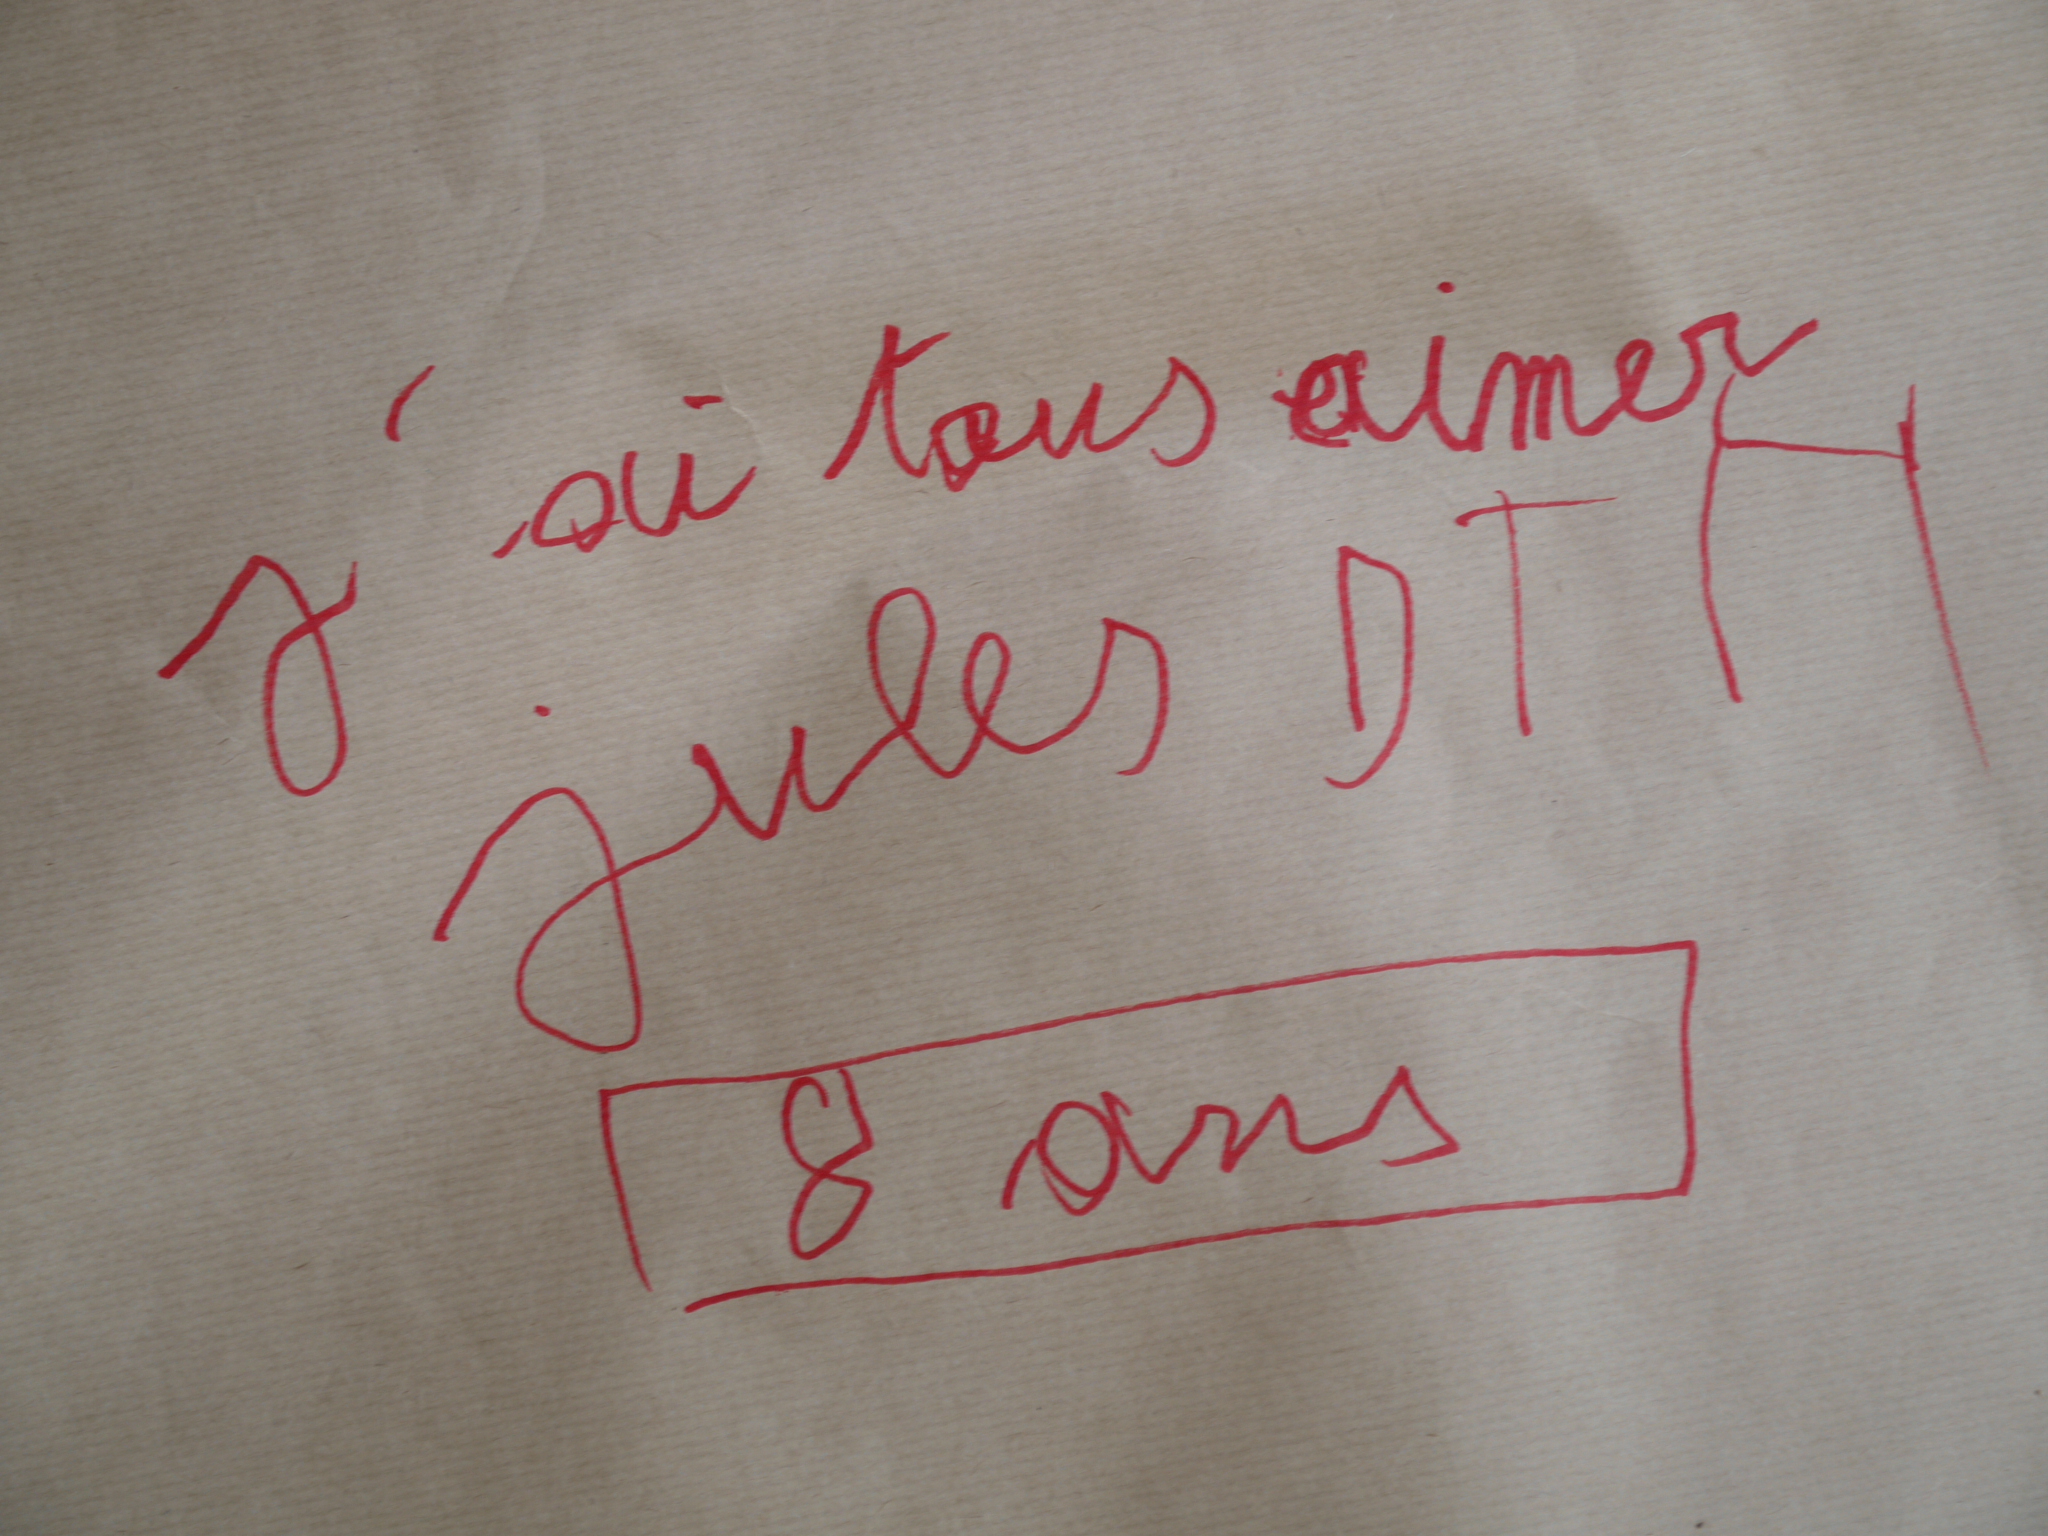 j'ai tous aimer
jules DTM
8 ans